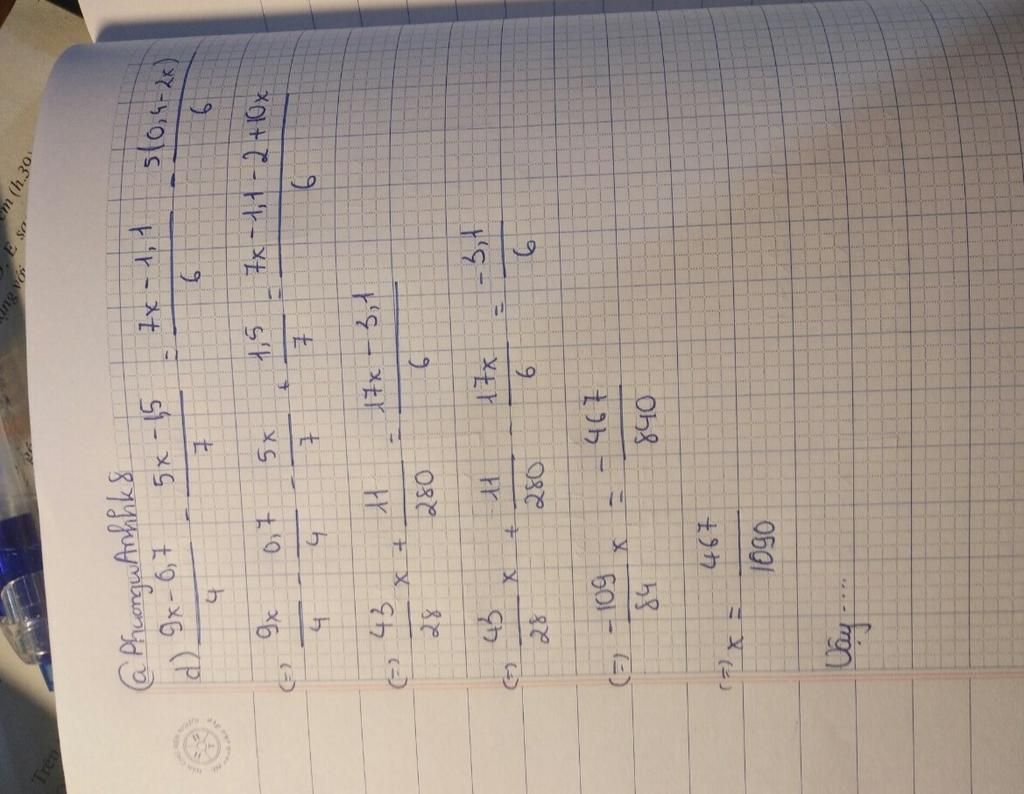 @PhuongwAnhhk8
d) 9x - 0,7 / 4 - 5x - 1,5 / 7 = 7x - 1,1 / 6 - 5(0,4 - 2x) / 6
(=) 9x / 4 - 0,7 / 4 - 5x / 7 + 1,5 / 7 = 7x - 1,1 - 2 + 10x / 6
(=) 43 / 28 x + 11 / 280 = 17x - 3,1 / 6
(=) 43 / 28 x + 11 / 280 - 17x / 6 = -3,1 / 6
(=) -109 / 84 x = -467 / 840
(=) x = 467 / 1090
Vậy....